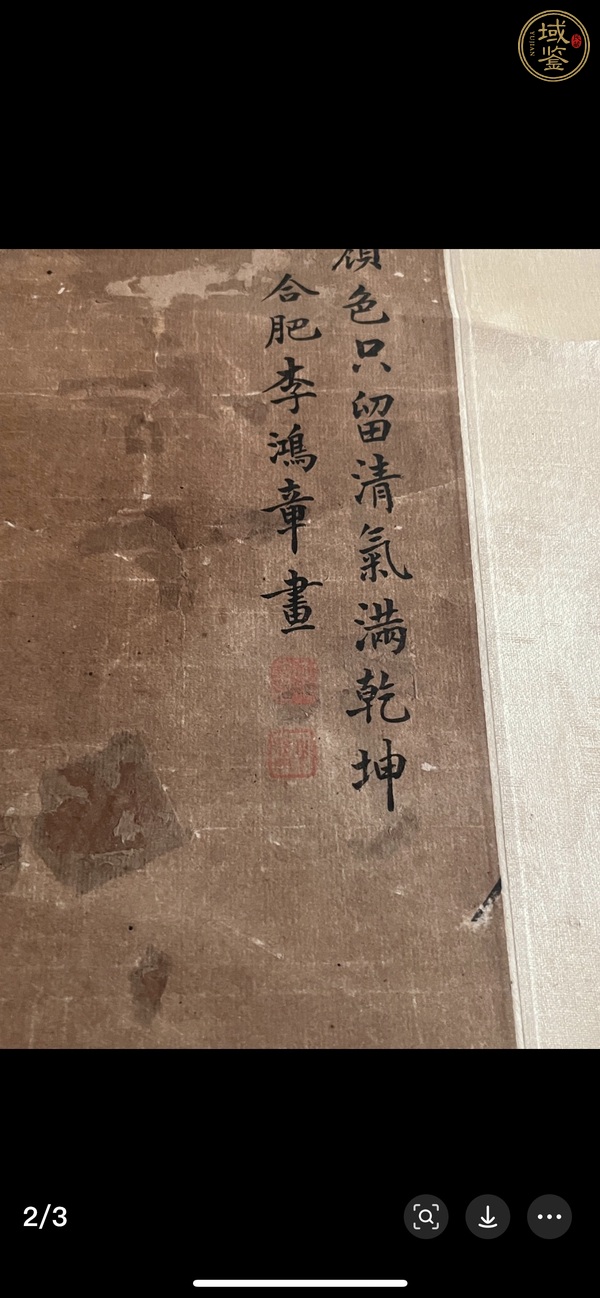 域鉴
YUJIAN
顔色只留清氣滿乾坤
合肥李鴻章畫
2/3